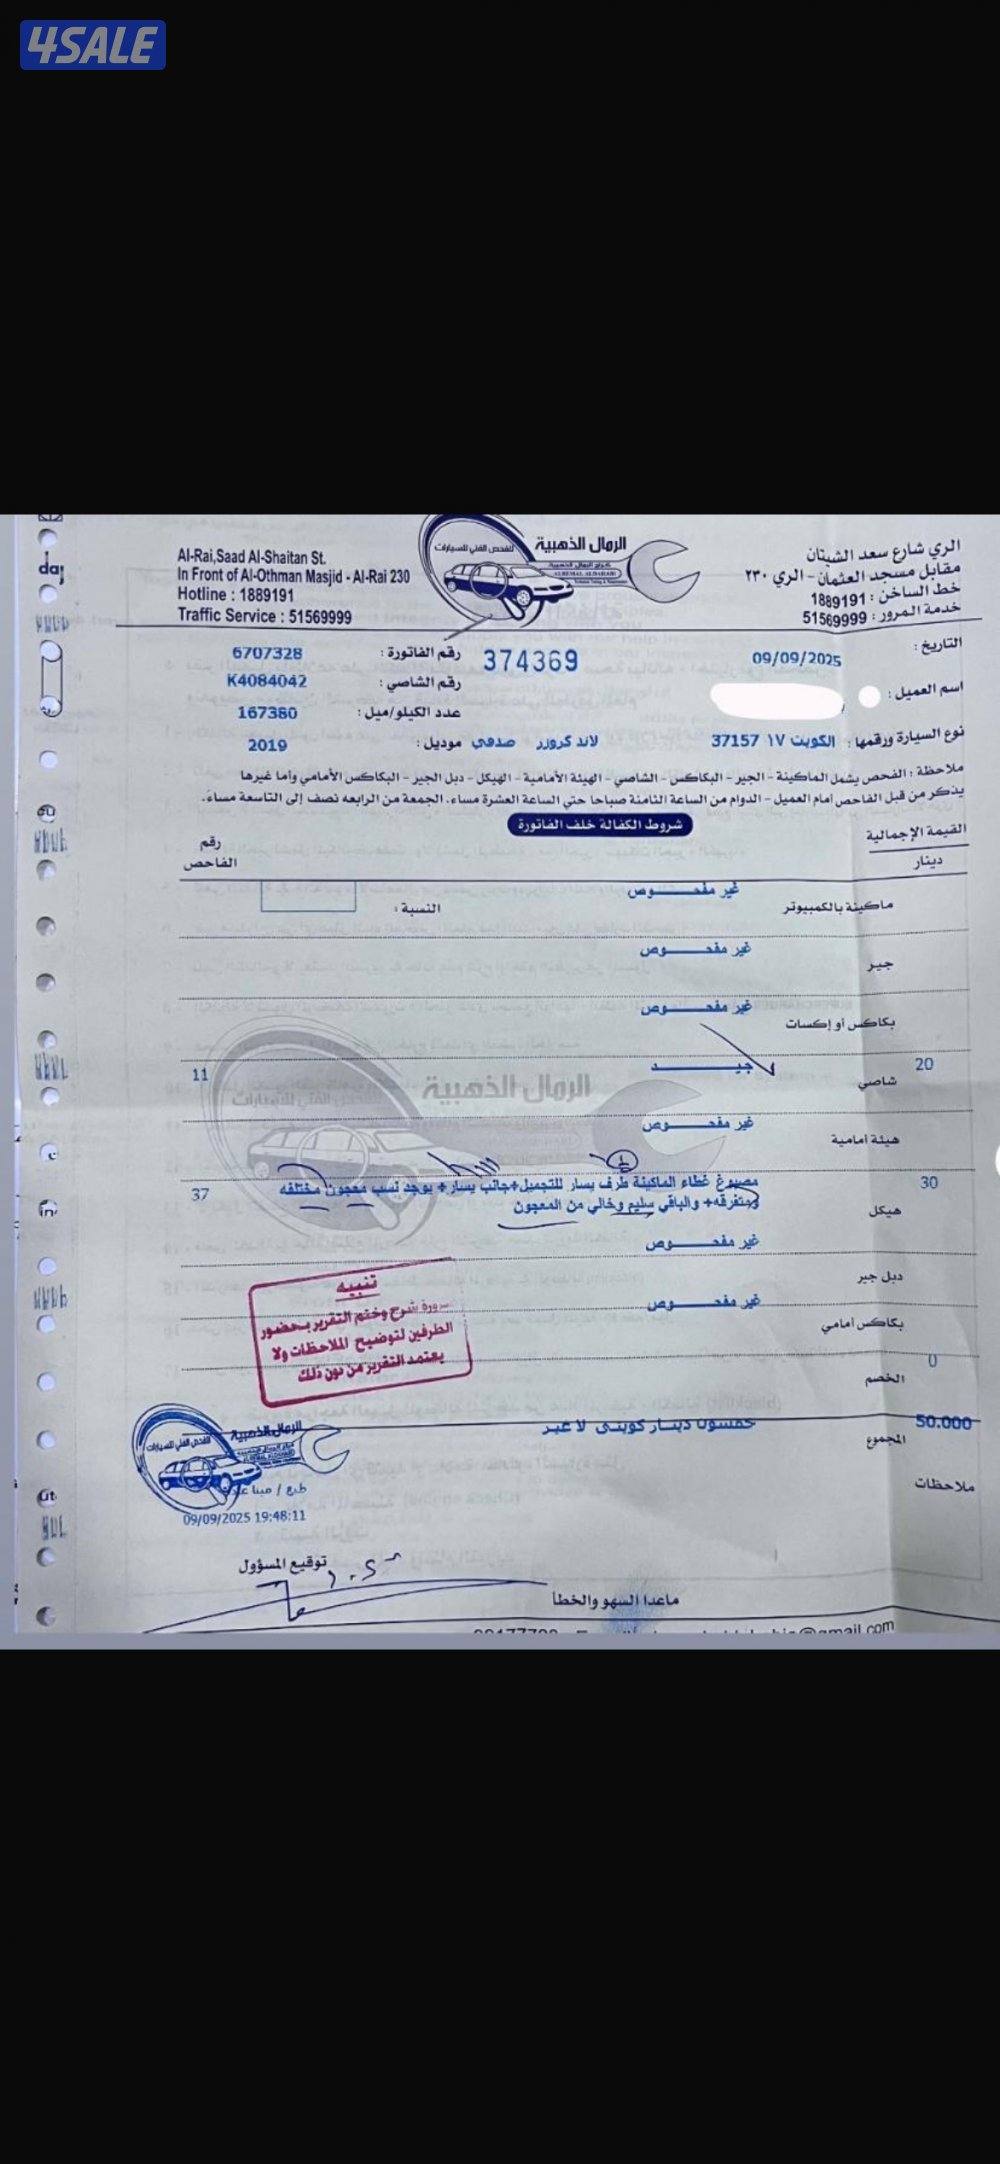 4SALE
Al-Rai,Saad Al-Shaitan St.
In Front of Al-Othman Masjid - Al-Rai 230
Hotline : 1889191
Traffic Service : 51569999
الرمال الذهبية
للفحص الفني للسيارات
الري شارع سعد الشيتان
مقابل مسجد العثمان - الري ٢٣٠
خط الساخن : 1889191
خدمة المرور : 51569999
التاريخ : 09/09/2025
374369
رقم الفاتورة : 6707328
اسم العميل :
رقم الشاصي : K4084042
عدد الكيلو/ميل : 167380
نوع السيارة ورقمها : الكويت ١٧ 37157 لاند كروزر صدفي
موديل : 2019
ملاحظة : الفحص يشمل الماكينة - الجير - البكاكس - الشاصي - الهيئة الأمامية - الهيكل - دبل الجير - البكاكس الأمامي وأما غيرها
يذكر من قبل الفاحص أمام العميل - الدوام من الساعة الثامنة صباحا حتي الساعة العشرة مساء، الجمعة من الرابعه نصف إلى التاسعة مساءً.
شروط الكفالة خلف الفاتورة
القيمة الإجمالية
دينار
رقم
الفاحص
ماكينة بالكمبيوتر غير مفحوص النسبة :
جير غير مفحوص
بكاكس أو إكسات غير مفحوص
20 شاصي جيد 11
هيئة امامية غير مفحوص
30 هيكل مصبوغ غطاء الماكينة طرف يسار للتجميل+جانب يسار+ يوجد نسب معجون مختلفه 37
ومتفرقه+ والباقي سليم وخالي من المعجون
دبل جير غير مفحوص
بكاكس أمامي غير مفحوص
0 الخصم
تنبيه
ضرورة شرح وختم التقرير بحضور
الطرفين لتوضيح الملاحظات ولا
يعتمد التقرير من دون ذلك
50.000 المجموع خمسون دينار كويتى لا غير
ملاحظات
الرمال الذهبية
للفحص الفني للسيارات
09/09/2025 19:48:11
توقيع المسؤول
ماعدا السهو والخطأ
@gmail.com